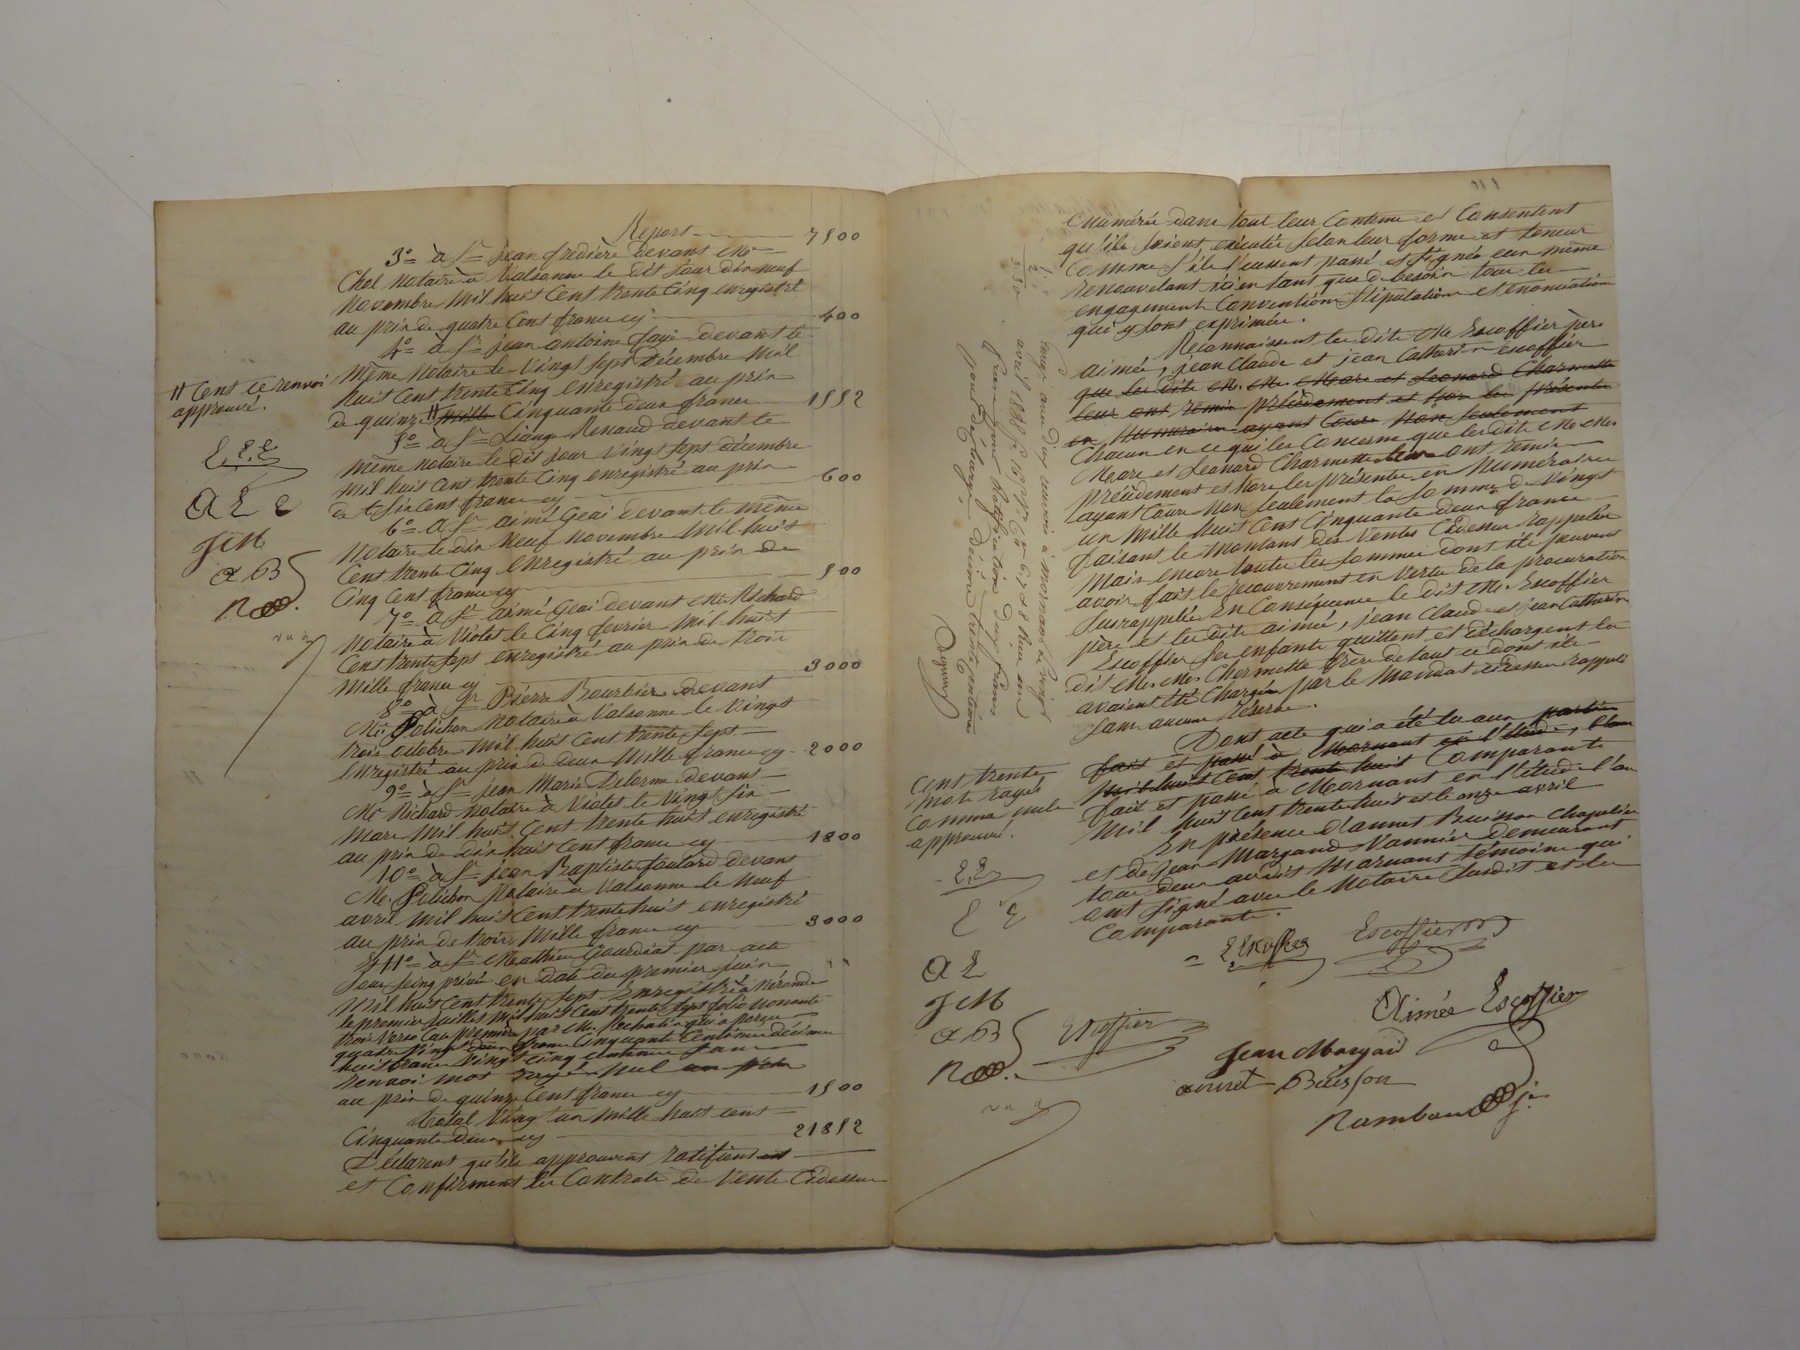 Report 7500
3° à Sr jean fredière devant Me
Chol Notaire à Valsonne le dit jour dix neuf
Novembre mil huit Cent trente Cinq enregistré
au prix de quatre Cent francs cy 400
4° à Sr jean antoine faye devant le
Même Notaire le Vingt Sept Décembre Mil
huit Cent trente Cinq enregistré au prix
de quinze # mille Cinquante deux francs 1552
5° à Sr Renaud devant le
même notaire le dit jour Vingt Sept décembre
mil huit Cent trente Cinq enregistré au prix
de Six Cent francs cy 600
6° à Sr aimé Geai devant le même
Notaire le dix Neuf Novembre Mil huit
Cent trente Cinq enregistré au prix de
Cinq Cent francs cy 500
7° à Sr aimé Geai devant Me Richard
Notaire à Violet le Cinq fevrier Mil huit
Cent trente Sept enregistré au prix de trois
Mille francs cy 3000
8° à Sr Pierre Bourbier devant
Me Polichon Notaire à Valsonne le Vingt
trois octobre Mil huit Cent trente Sept
Enregistré au prix de deux Mille francs cy 2000
9° à Sr jean Marie Delorme devant
Me Richard Notaire à Violet le Vingt Six
Mars Mil huit Cent trente huit enregistré
au prix de dix huit Cent francs cy 1800
10° à Sr jean Baptiste devant
Me Polichon Notaire à Valsonne le Neuf
avril Mil huit Cent trente huit enregistré
au prix de trois Mille francs cy 3000
11° à Sr Matthieu Gourdiat par acte
Sous Seing privé en date du premier juin
Mil huit Cent trente Sept Enregistré à
le premier juillet mil huit Cent trente Sept folio nonante
trois Verso Case première par Me qui a perçu
quatre Vingt deux francs Cinquante Centimes décime
huit francs Vingt Cinq centimes Sans
renvoi mot rayé Nul au prix
au prix de quinze Cent francs cy 1500
total Vingt un Mille huit cent
Cinquante deux cy 21852
Déclarent qu'ils approuvent ratifient et
et Confirment les Contrats de Vente Cidessus
# Cent ce renvoi
approuvé.
E. E. E
A E E
JCM
A B
R
énumérés dans tout leur Contenu et Consentent
qu'ils Soient exécutés Selon leur forme et teneur
Comme S'ils l'eussent passé et Signés eux même
renouvelant ici en tant que de besoin tous les
engagement Convention Stipulation et enonciation
qui y Sont exprimés.
Reconnaissent les dits Me Escoffier père
aimée, jean Claude et jean Catherin escoffier
que les dits M. Me Marc et Leonard Charmette
leur ont remis précédement et hors les présente
en Numéraire ayant Cours Non Seulement
Chacun en ce qui les Concerne que les dits Me Me
Marc et Leonard Charmette leur ont remis
précédement et hors les présentes en Numéraire
ayant Cours Non Seulement la Somme de Vingt
un Mille huit Cent Cinquante deux francs
faisant le Montant des Ventes Cidessus rappelées
Mais encore toutes les Sommes dont ils peuvent
avoir fait le recouvrement en Vertu de la procuration
Susrappelée En Conséquence le dit Me Escoffier
père et les dits aimée, jean Claude et jean Catherin
Escoffier Ses enfants quittent et déchargent les
dits Me Me Charmette frère de tout ce dont ils
avaient été Chargés par le Mandat cidessus rappelé
Sans aucune Réserve.
Dont acte qui a été lu aux parties
fait et passé à Mornant en l'étude, l'an
Mil huit Cent trente huit Comparants
fait et passé à Mornant en l'étude l'an
Mil huit Cent trente huit et le onze avril
En présence d'annet Buisson Chapelier
et de Jean Margand Vannier demeurant
tous deux audit Mornant témoins qui
ont Signé avec le Notaire Susdit et les
Comparants.
Cent trente
Mots rayés
Comme nuls
approuvés.
E. E
A E
JCM
A B
R
Enregistré à Mornant le Vingt
avril 1838 f°
francs pour Ratification deux francs
pour décharge décime trente centimes
Escoffier
Escoffier
Aimée Escoffier
Escoffier
Jean Margand
annet Buisson
Rambaud